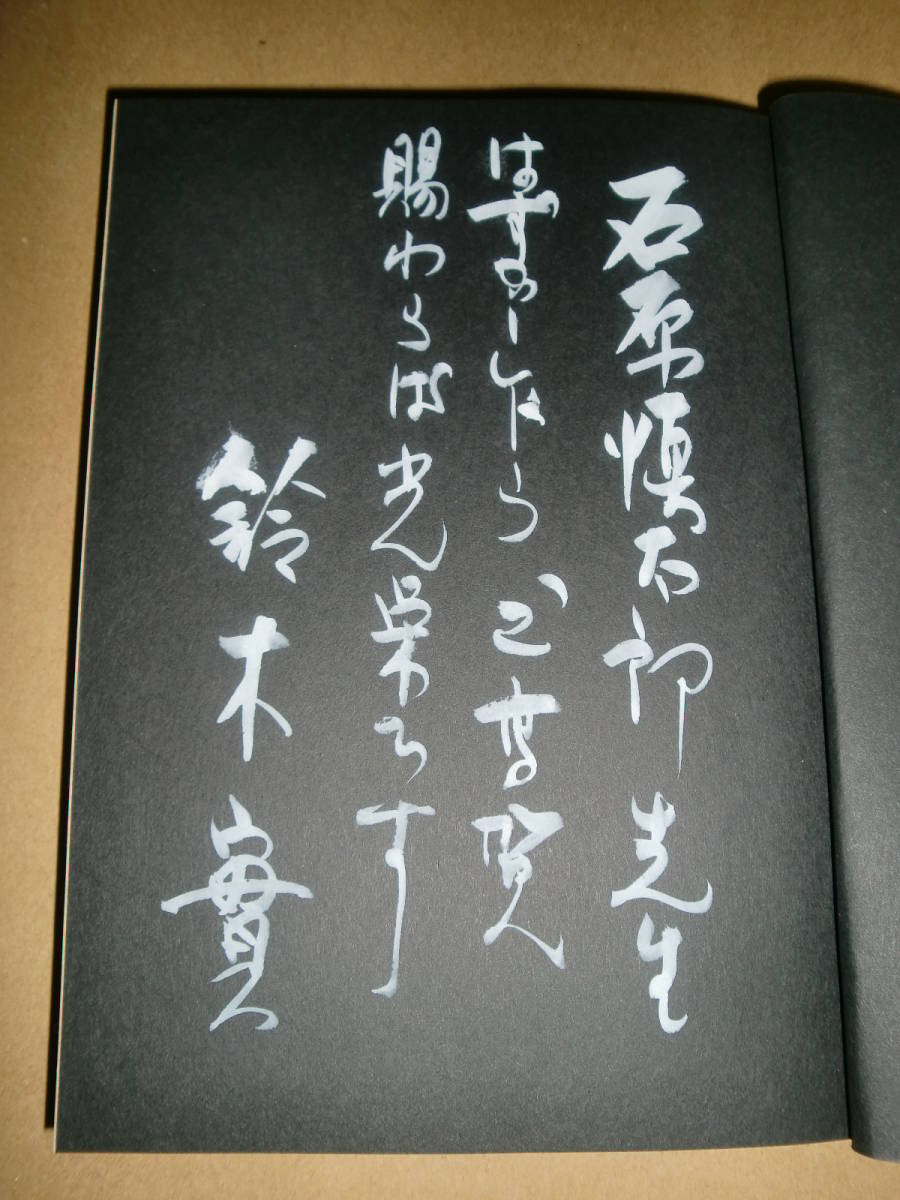 石原慎太郎先生
はずかし乍らご高覧
賜わらば光栄です
鈴木實